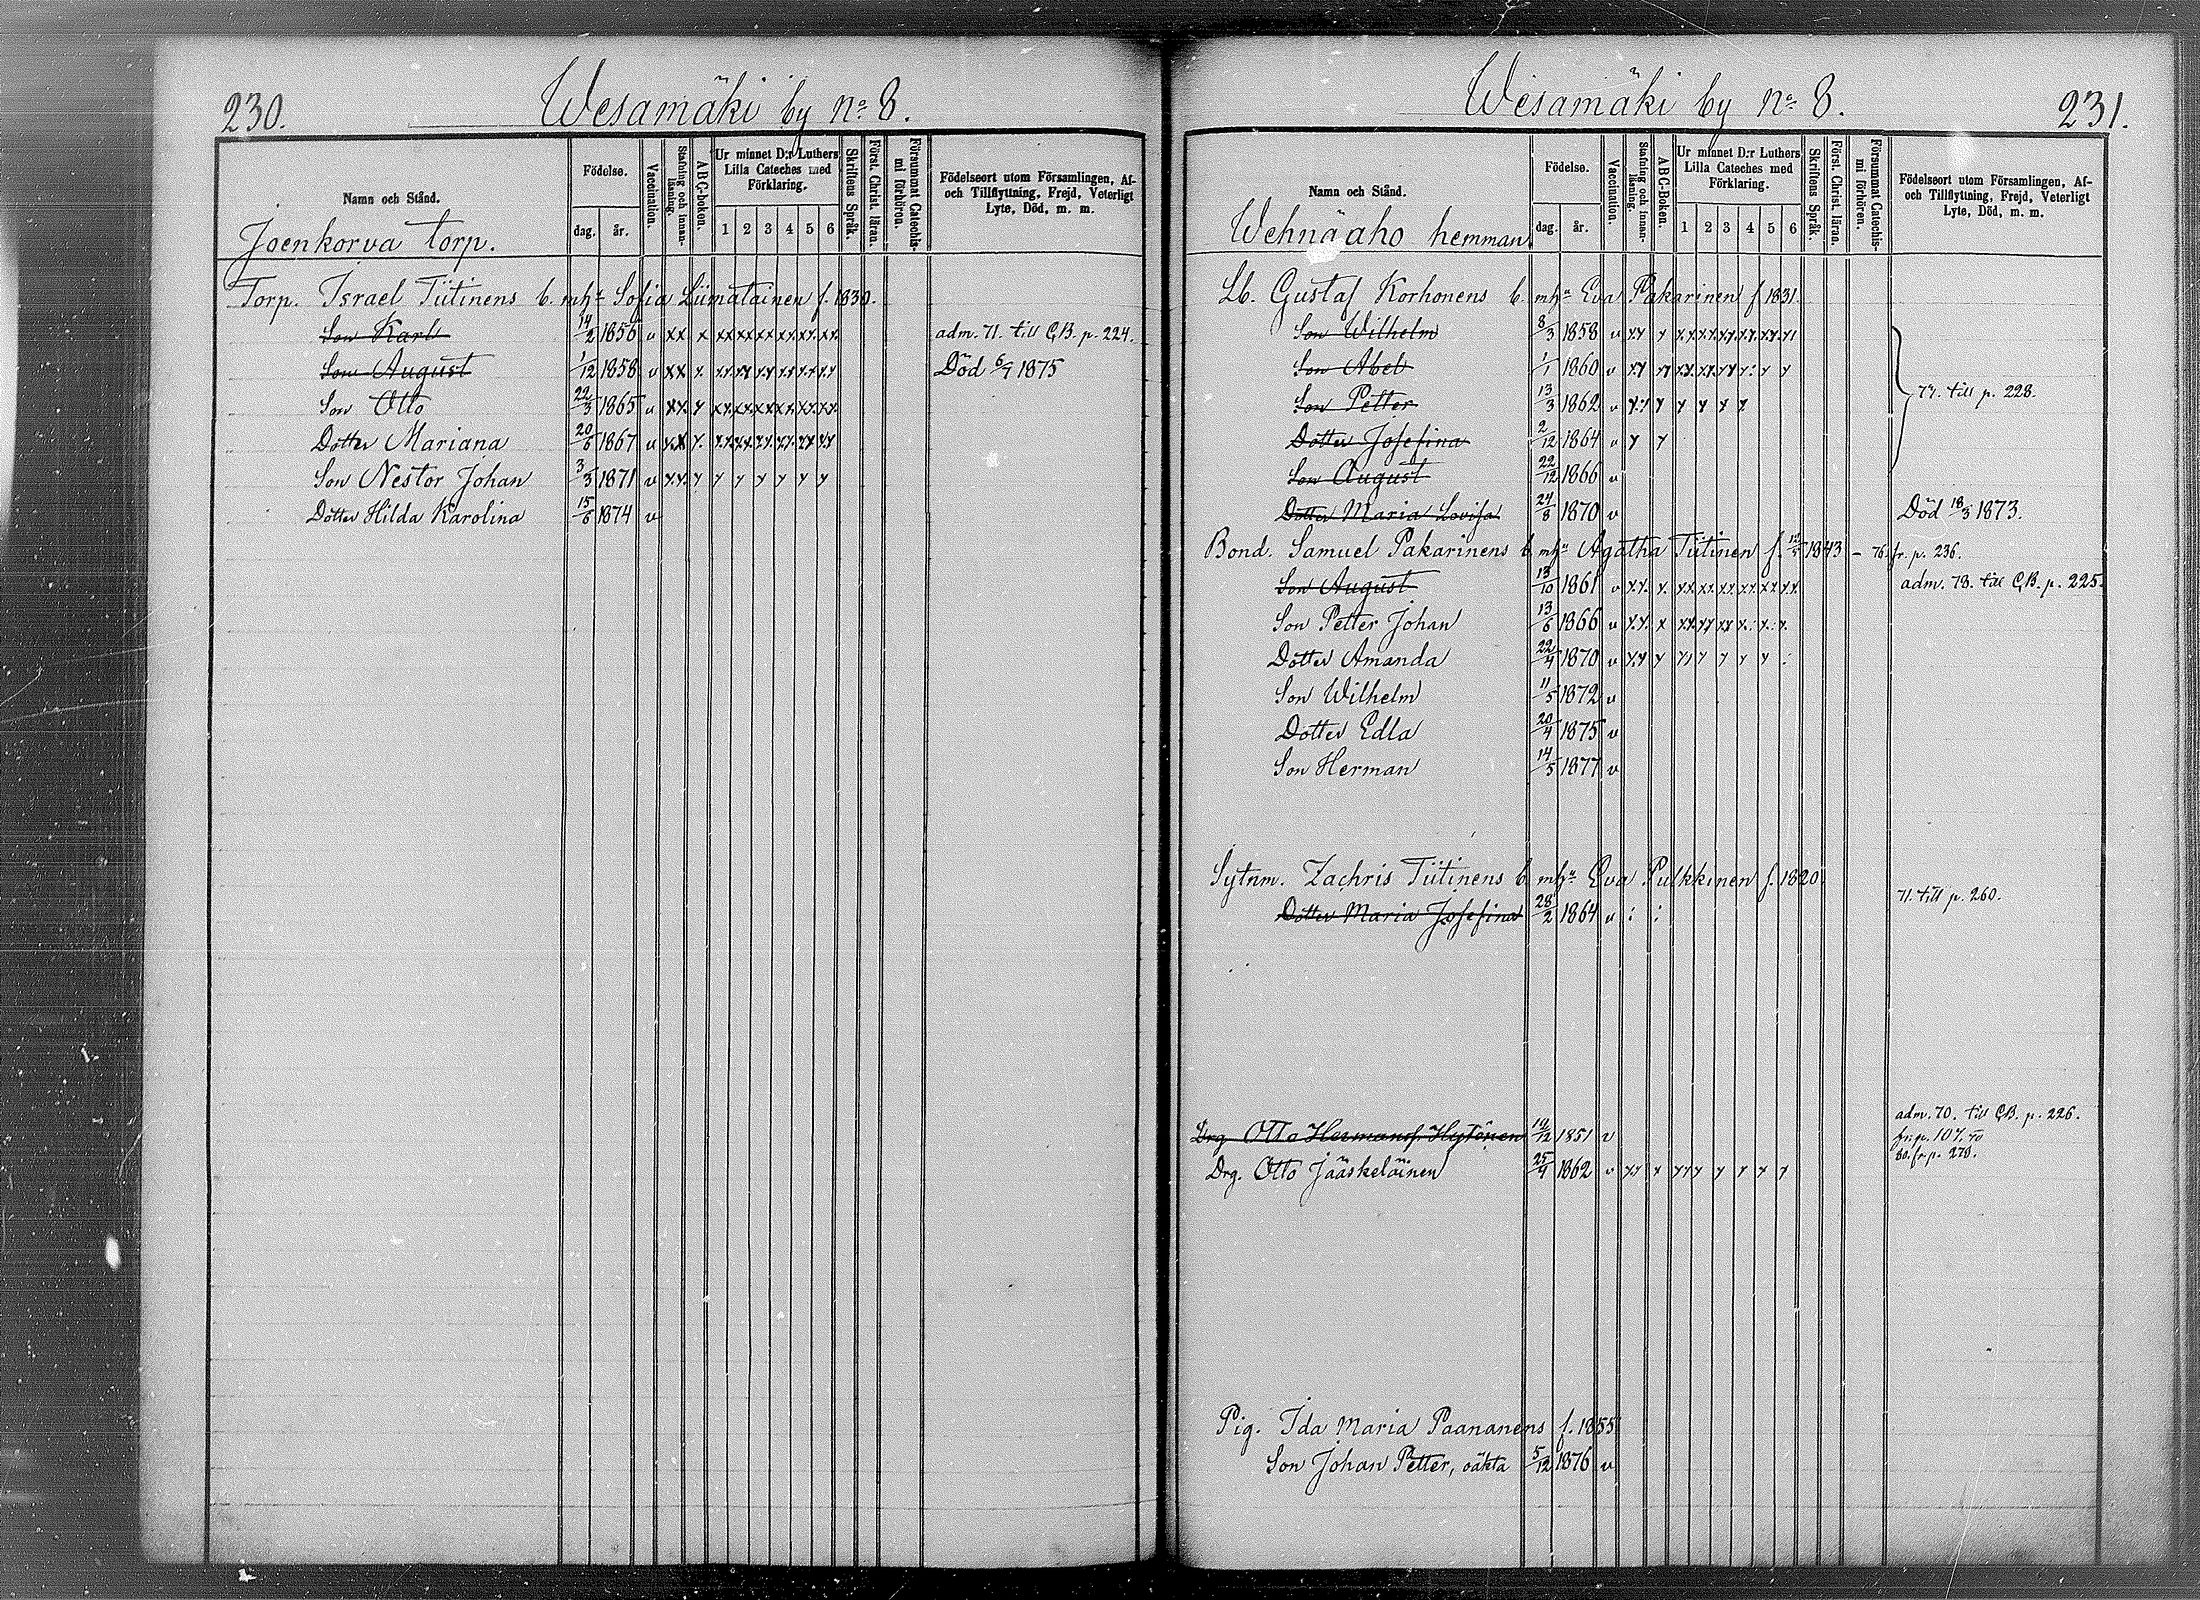 230.
Wesamäki by No 8.
Namn och Stånd.
Födelse.
dag.
år.
Vaccination.
Stafning och innan-läsning.
ABC-boken.
Ur minnet D:r Luthers Lilla Cateches med Förklaring.
1 2 3 4 5 6
Skriftens Språk.
Först. Christ. läran.
Försummat Catechis-mi förhören.
Födelseort utom Församlingen, Af- och Tillflyttning, Frejd, Veterligt Lyte, Död, m. m.
Joenkorva torp.
Torp. Israel Tiitinens b. mhu Sofia Liimatainen f. 1830.
Son Karl 14/2 1856 v xx x xx xx xx xx xx xx adm. 71. till C.B. p. 224.
Son August 1/12 1858 v xx x xx xx xx xx xx xx Död 6/7 1875
Son Otto 22/3 1865 v xx x xx xx xx xx xx xx
Dotter Mariana 20/6 1867 v xx x xx xx xx xx xx xx
Son Nestor Johan 3/3 1871 v xx x x x x x x x
Dotter Hilda Karolina 15/6 1874 v
Wesamäki by No 8.
231.
Namn och Stånd.
Födelse.
dag.
år.
Vaccination.
Stafning och innan-läsning.
ABC-Boken.
Ur minnet D:r Luthers Lilla Cateches med Förklaring.
1 2 3 4 5 6
Skriftens Språk.
Först. Christ. läran.
Försummat Catechis-mi förhören.
Födelseort utom Församlingen, Af- och Tillflyttning, Frejd, Veterligt Lyte, Död, m. m.
Wehnääho hemman.
Lb. Gustaf Korhonens b. mhu Eva Pakarinen f. 1831.
Son Wilhelm 8/3 1858 v xx x xx xx xx xx xx xx
Son Abel 1/1 1860 v xx xx xx xx xx x: x x
Son Petter 13/3 1862 v xx x x x x x 77. till p. 228.
Dotter Josefina 2/12 1864 v x x
Son August 22/12 1866 v
Dotter Maria Lovisa 24/8 1870 v Död 18/3 1873.
Bond. Samuel Pakarinens b. mhu Agatha Tiitinen f. 1843 – 76. fr. p. 236.
Son August 13/10 1861 v xx x xx xx xx xx xx xx adm. 78. till C.B. p. 225.
Son Petter Johan 13/6 1866 v xx x xx xx xx x: x: x
Dotter Amanda 22/4 1870 v xx x xx x x x x :
Son Wilhelm 11/5 1872 v
Dotter Edla 20/4 1875 v
Son Herman 14/5 1877 v
Sytnm. Zachris Tiitinens b. mhu Eva Pulkkinen f. 1820.
71. till p. 260.
Dotter Maria Josefina 28/2 1864 v : :
adm. 70. till C.B. p. 226.
Drg. Otto Hermansf. Hytönen 1851 v fr. p. 107.
80. fr. p. 278.
Drg. Otto Jääskeläinen 25/4 1862 v xx x xx x x x x x
Pig. Ida Maria Paananens f. 1855
Son Johan Petter, oäkta 5/12 1876 v